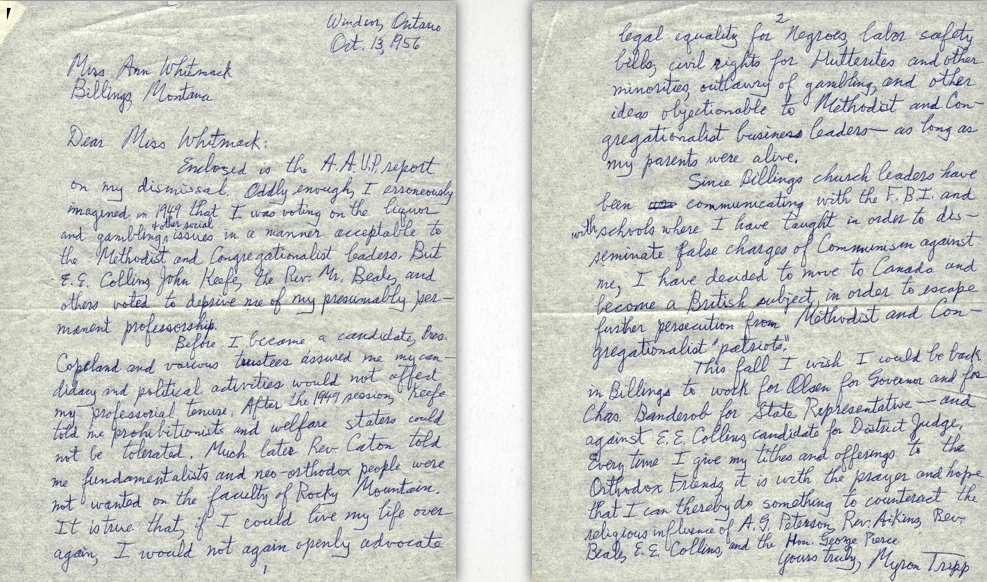 Windsor, Ontario
Oct. 13, 1956
Miss Ann Whitmack
Billings, Montana
Dear Miss Whitmack:
Enclosed is the A.A.U.P. report
on my dismissal. Oddly enough, I erroneously
imagined in 1949 that I was voting on the liquor
and gambling & other social issues in a manner acceptable to
the Methodist and Congregationalist leaders. But
E.E. Collins, John Keefe, the Rev. Mr. Beale, and
others voted to deprive me of my presumably per-
manent professorship.
Before I became a candidate, Pres.
Copeland and various trustees assured me my can-
didacy and political activities would not affect
my professorial tenure. After the 1949 session, Keefe
told me prohibitionists and welfare staters could
not be tolerated. Much later Rev. Caton told
me fundamentalists and neo-orthodox people were
not wanted on the faculty of Rocky Mountain.
It is true that, if I could live my life over
again, I would not again openly advocate
1
2
legal equality for Negroes, labor safety
bills, civil rights for Hutterites and other
minorities, outlawry of gambling, and other
ideas objectionable to Methodist and Con-
gregationalist business leaders—as long as
my parents were alive.
Since Billings church leaders have
been communicating with the F.B.I. and
with schools where I have taught in order to dis-
seminate false charges of Communism against
me, I have decided to move to Canada and
become a British subject, in order to escape
further persecution from Methodist and Con-
gregationalist "patriots".
This fall I wish I could be back
in Billings to work for Olsen for Governor and for
Chas. Banderob for State Representative—and
against E.E. Collins, candidate for District Judge.
Every time I give my tithes and offerings to the
Orthodox Friends it is with the prayer and hope
that I can thereby do something to counteract the
religious influence of A.G. Peterson, Rev. Aikins, Rev.
Beale, E.E. Collins, and the Hon. George Pierce.
Yours truly, Myron Tripp